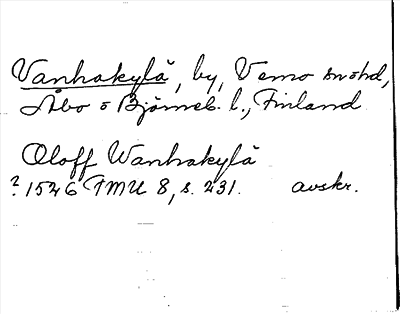 Vanhakylä, by, Vemo snöhd,
Åbo o Björneb. l., Finland
Oloff Wanhakylä
? 1546 FMU 8, s. 231. avskr.